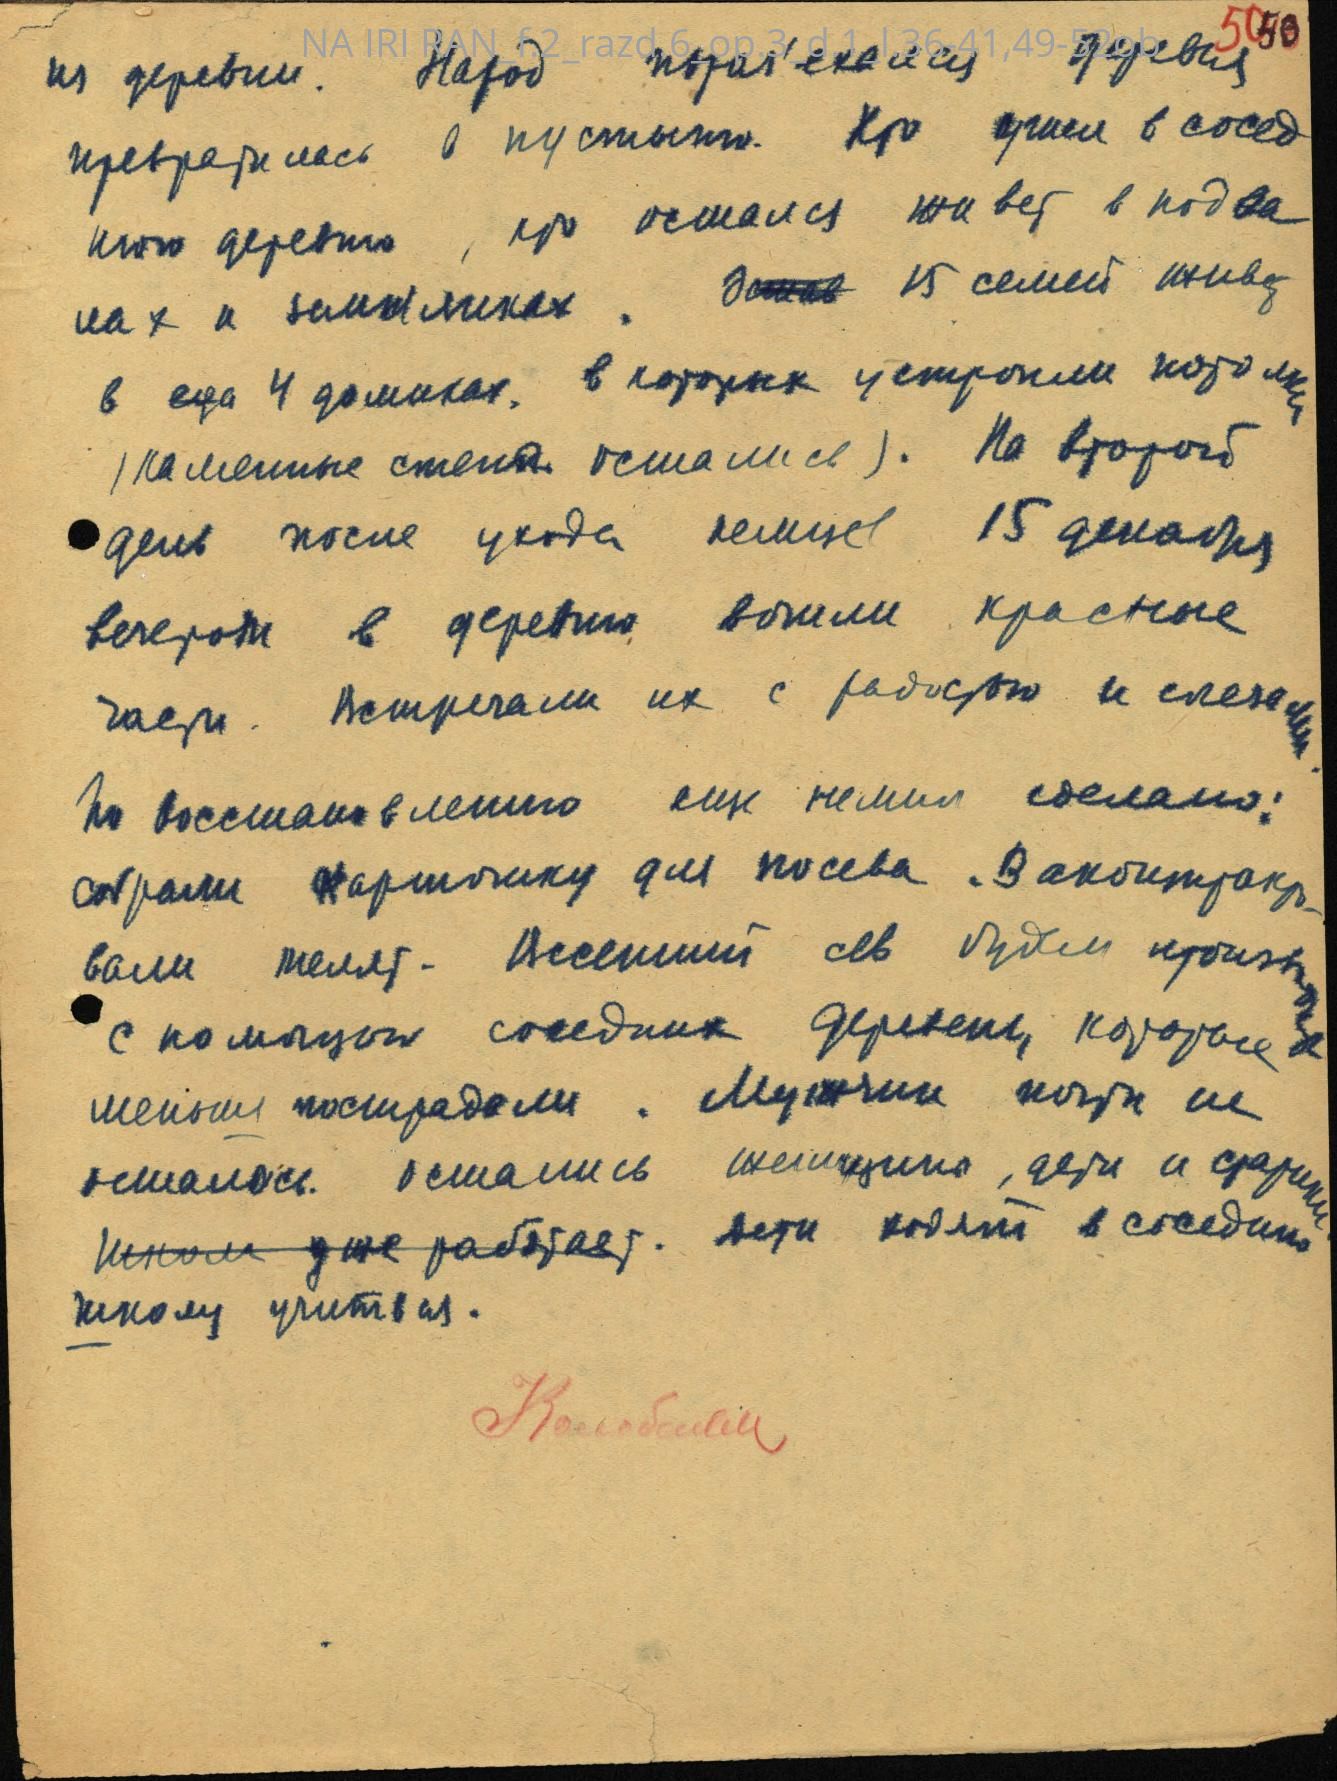 NA IRI RAN_f.2_razd.6_op.3_d.1_l.36-41,49-52ob
50 50
из деревни. Народ поразъехался деревня
превратилась в пустыню. Кто ушел в сосед
нюю деревню, кто остался живет в подва
лах и землянках. Остав 15 семей живет
в 4 домиках, в которых устроили потолки
(каменные стены остались). На второй
день после ухода немцев 15 декабря
вечером в деревню вошли красные
части. Встречали их с радостью и слезами.
По восстановлению еще немного сделано:
собрали картошку для посева. Законтракто-
вали телят. Весенний сев будем производить
с помощью соседних деревень, которые
меньше пострадали. Мужчин почти не
осталось. Остались женщины, дети и старики
Школа уже работает. Дети ходят в соседнюю
школу учиться.